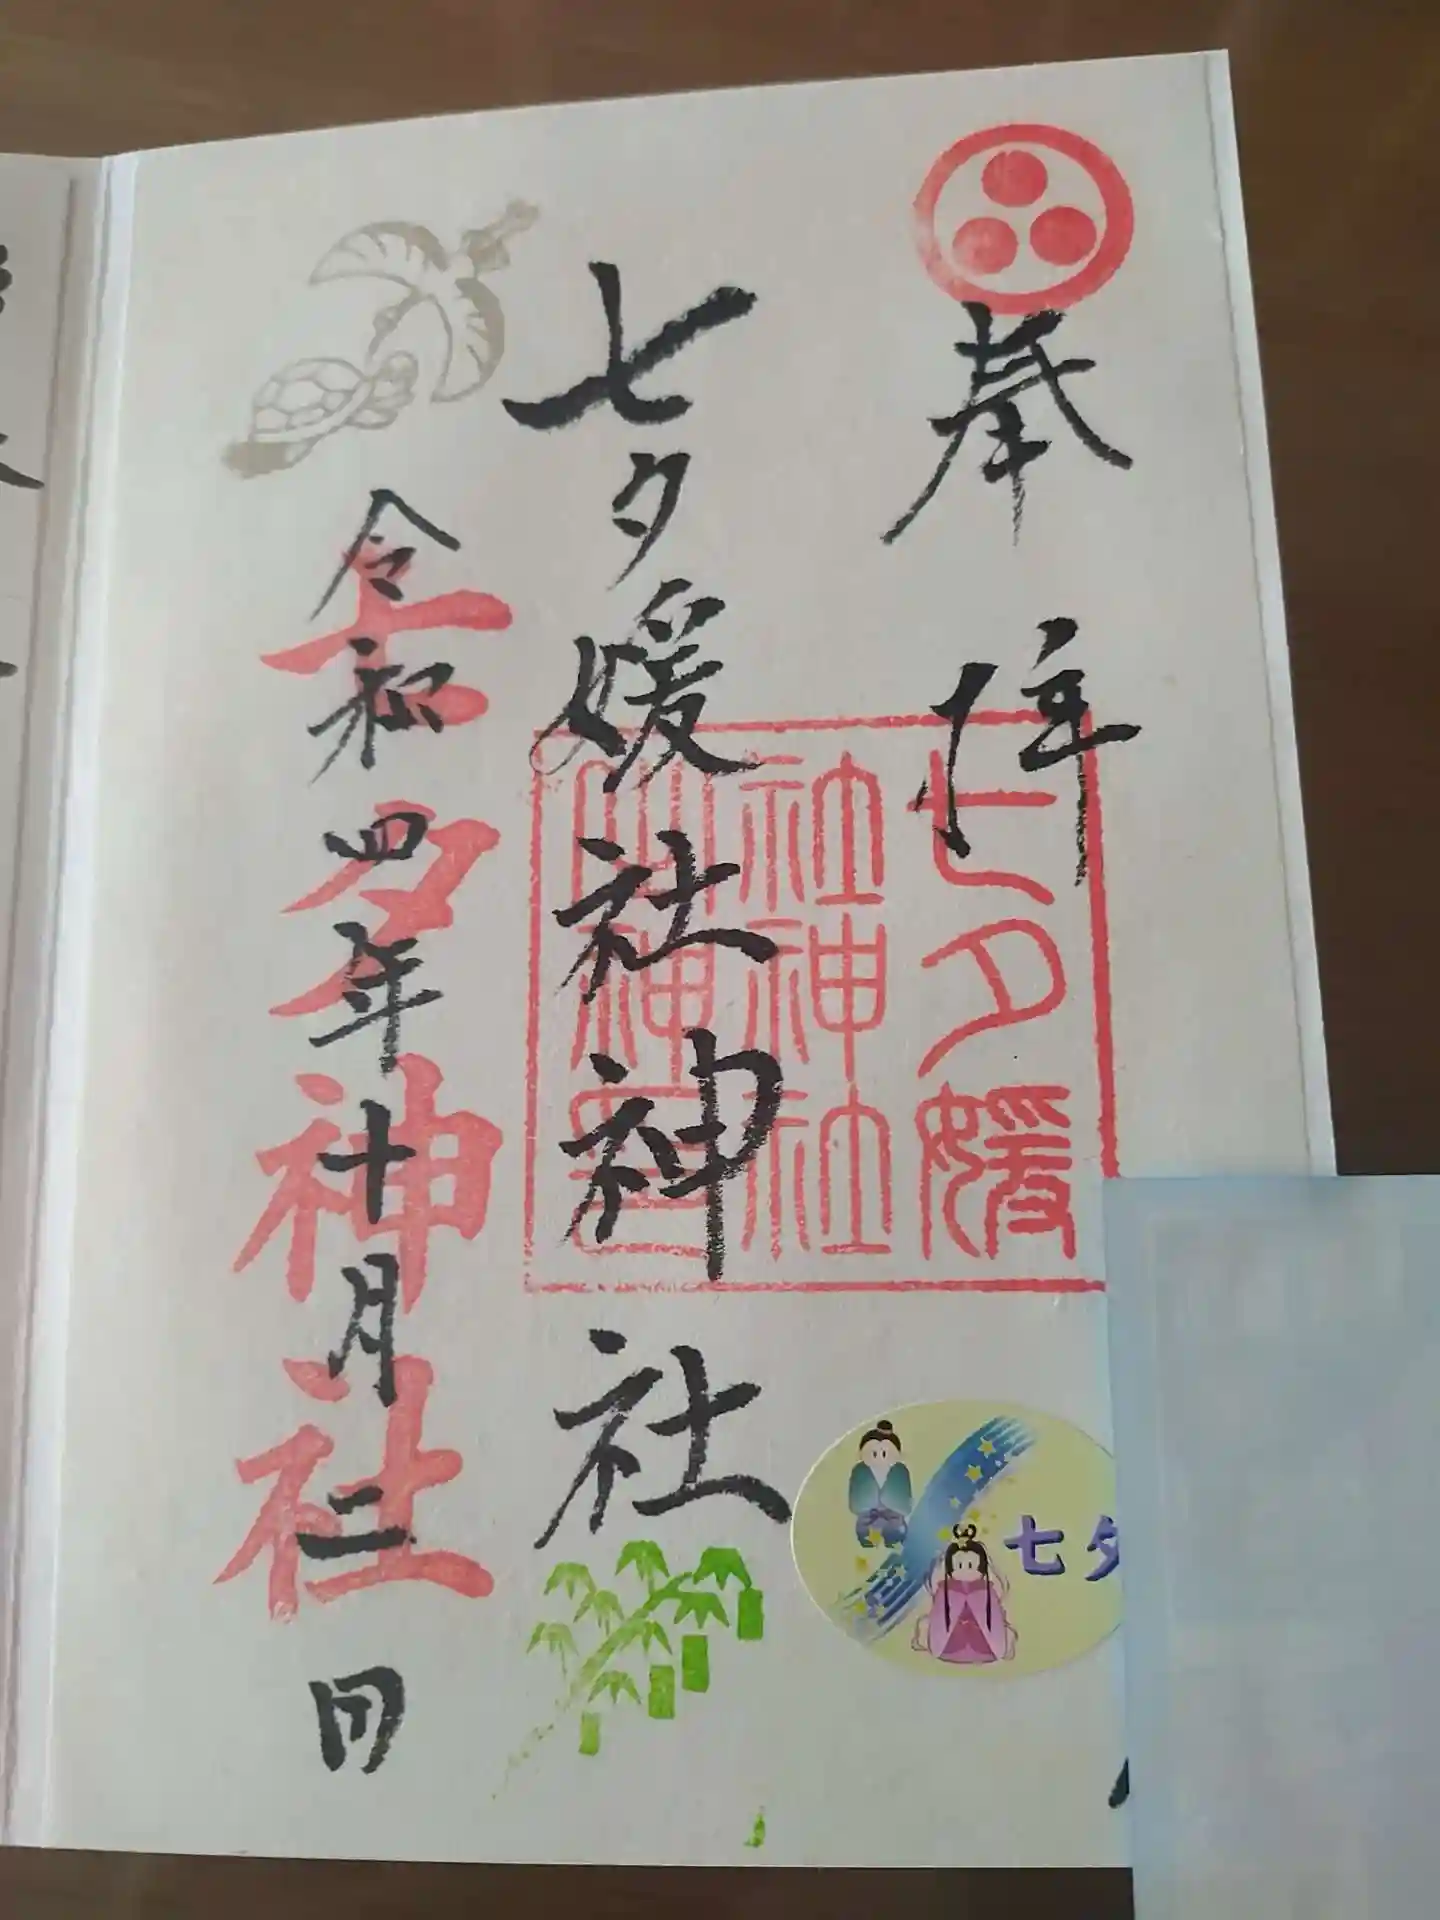 奉拝
七夕媛社神社
令和四年十月二日
七夕媛
社神社
七夕神社
七夕